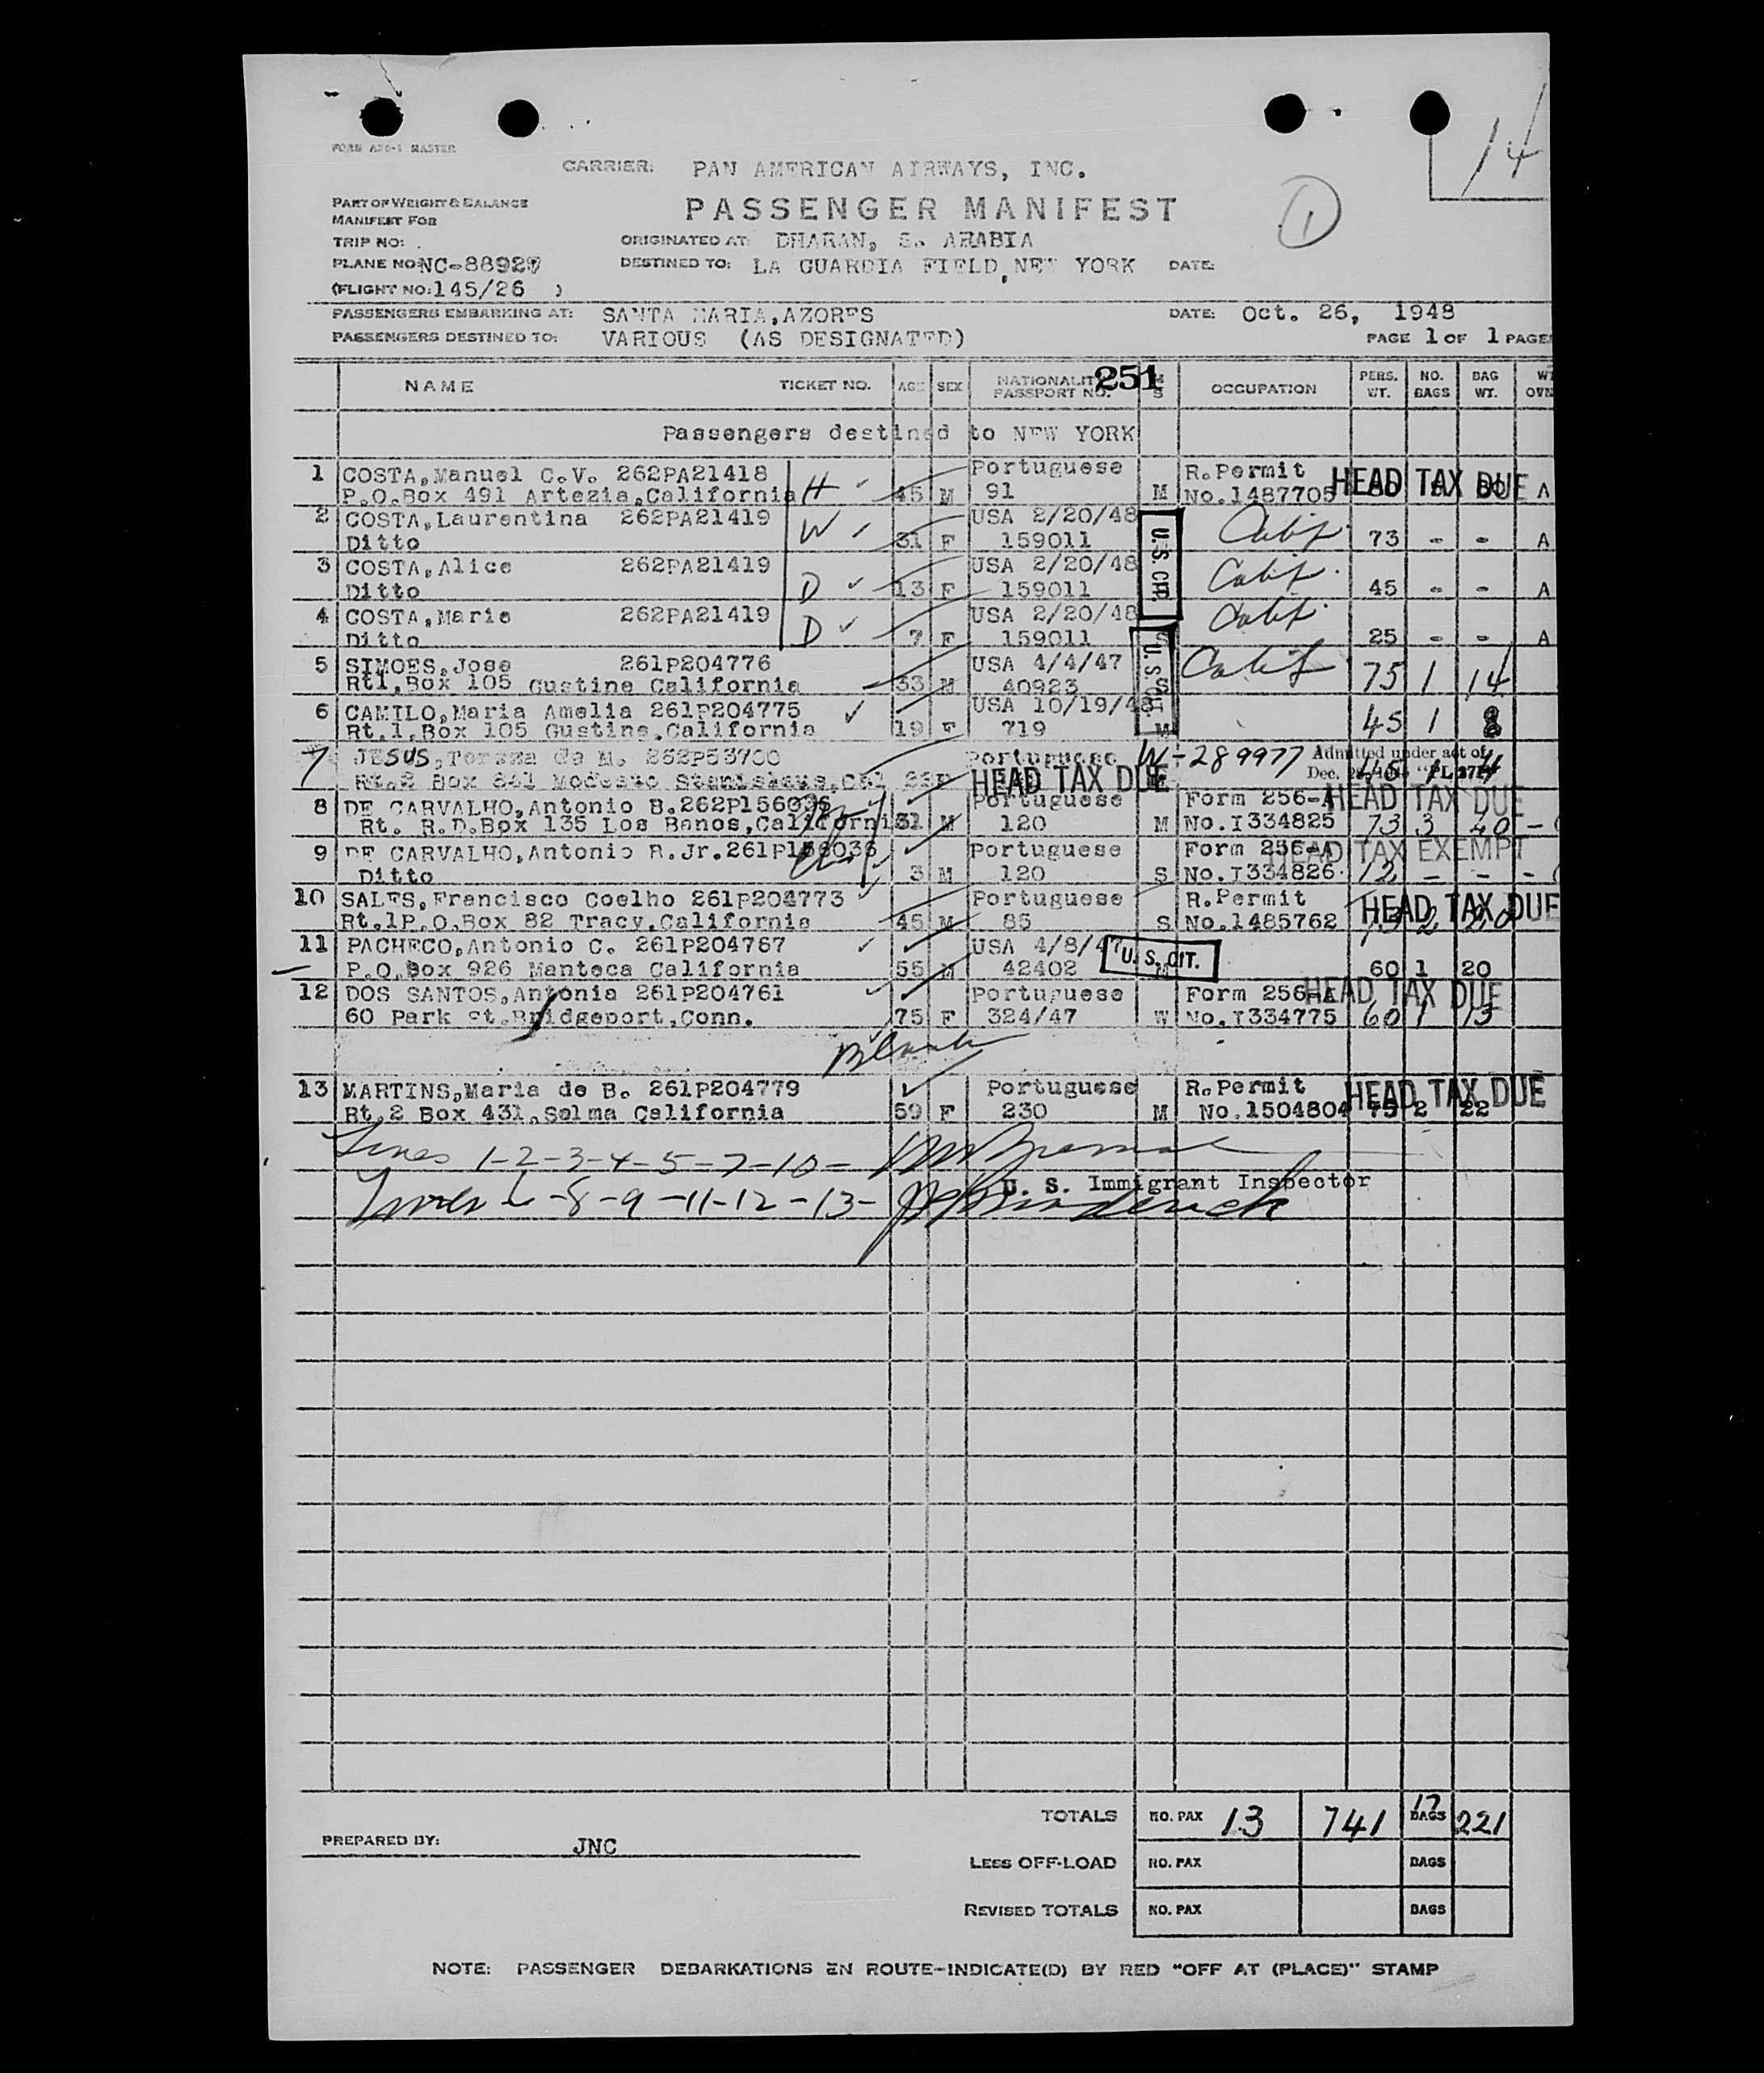 14
FORM A26-1 MASTER
CARRIER: PAN AMERICAN AIRWAYS, INC.
PART OF WEIGHT & BALANCE
MANIFEST FOR
PASSENGER MANIFEST
1
TRIP NO:
ORIGINATED AT: DHARAN, S. ARABIA
PLANE NO: NC-88927
DESTINED TO: LA GUARDIA FIELD, NEW YORK DATE:
(FLIGHT NO: 145/26 )
PASSENGERS EMBARKING AT: SANTA MARIA, AZORES DATE: Oct. 26, 1948
PASSENGERS DESTINED TO: VARIOUS (AS DESIGNATED) PAGE 1 OF 1 PAGE
251
NAME TICKET NO. AGE SEX NATIONALITY PASSPORT NO. M S OCCUPATION PERS. WT. NO. BAGS BAG WT.
Passengers destined to NEW YORK
1 COSTA, Manuel C.V. 262PA21418 H Portuguese R.Permit HEAD TAX DUE
P.O.Box 491 Artezia, California 45 M 91 M No.1487705 A
2 COSTA, Laurentina 262PA21419 W USA 2/20/48 Calif
Ditto 31 F 159011 73 - - A
3 COSTA, Alice 262PA21419 USA 2/20/48 U.S. CIT. Calif.
Ditto D 13 F 159011 45 - - A
4 COSTA, Marie 262PA21419 USA 2/20/48 Calif
Ditto D 7 F 159011 S 25 - - A
5 SIMOES, Jose 261P204776 USA 4/4/47 U.S. CIT. Calif
Rt1, Box 105 Gustine California 33 M 40923 S 75 1 14
6 CAMILO, Maria Amelia 261P204775 USA 10/19/48
Rt.1, Box 105 Gustine, California 19 F 719 M 45 1 8
7 JESUS, Tereza de M. 262P53700 Portuguese W-289977 Admitted under act of
Rt.2 Box 861 Modesto Stanislaus, Cal F HEAD TAX DUE Dec.
8 DE CARVALHO, Antonio B. 262P156036 Portuguese Form 256-A HEAD TAX DUE
Rt. R.D.Box 135 Los Banos, California 31 M 120 M No.I334825 73 3 40 -
9 DE CARVALHO, Antonio R.Jr. 261P156036 Portuguese Form 256-A HEAD TAX EXEMPT
Ditto 3 M 120 S No.I334826 12 - - -
10 SALES, Francisco Coelho 261P204773 Portuguese R.Permit HEAD TAX DUE
Rt.1P.O.Box 82 Tracy, California 45 M 85 S No.1485762
11 PACHECO, Antonio C. 261P204767 USA 4/8/47 U.S. CIT.
P.O.Box 926 Manteca California 55 M 42402 M 60 1 20
12 DOS SANTOS, Antonia 261P204761 Portuguese Form 256-A HEAD TAX DUE
60 Park St. Bridgeport, Conn. 75 F 324/47 W No.I334775 60 1 13
Blank
13 MARTINS, Maria de B. 261P204779 Portuguese R.Permit HEAD TAX DUE
Rt.2 Box 431, Selma California 59 F 230 M No.1504804 75 2 22
Lines 1-2-3-4-5-7-10-
U. S. Immigrant Inspector
Lines 6-8-9-11-12-13-
TOTALS NO. PAX 13 741 17 BAGS 221
PREPARED BY: JNC
LESS OFF-LOAD NO. PAX BAGS
REVISED TOTALS NO. PAX BAGS
NOTE: PASSENGER DEBARKATIONS EN ROUTE-INDICATE(D) BY RED "OFF AT (PLACE)" STAMP